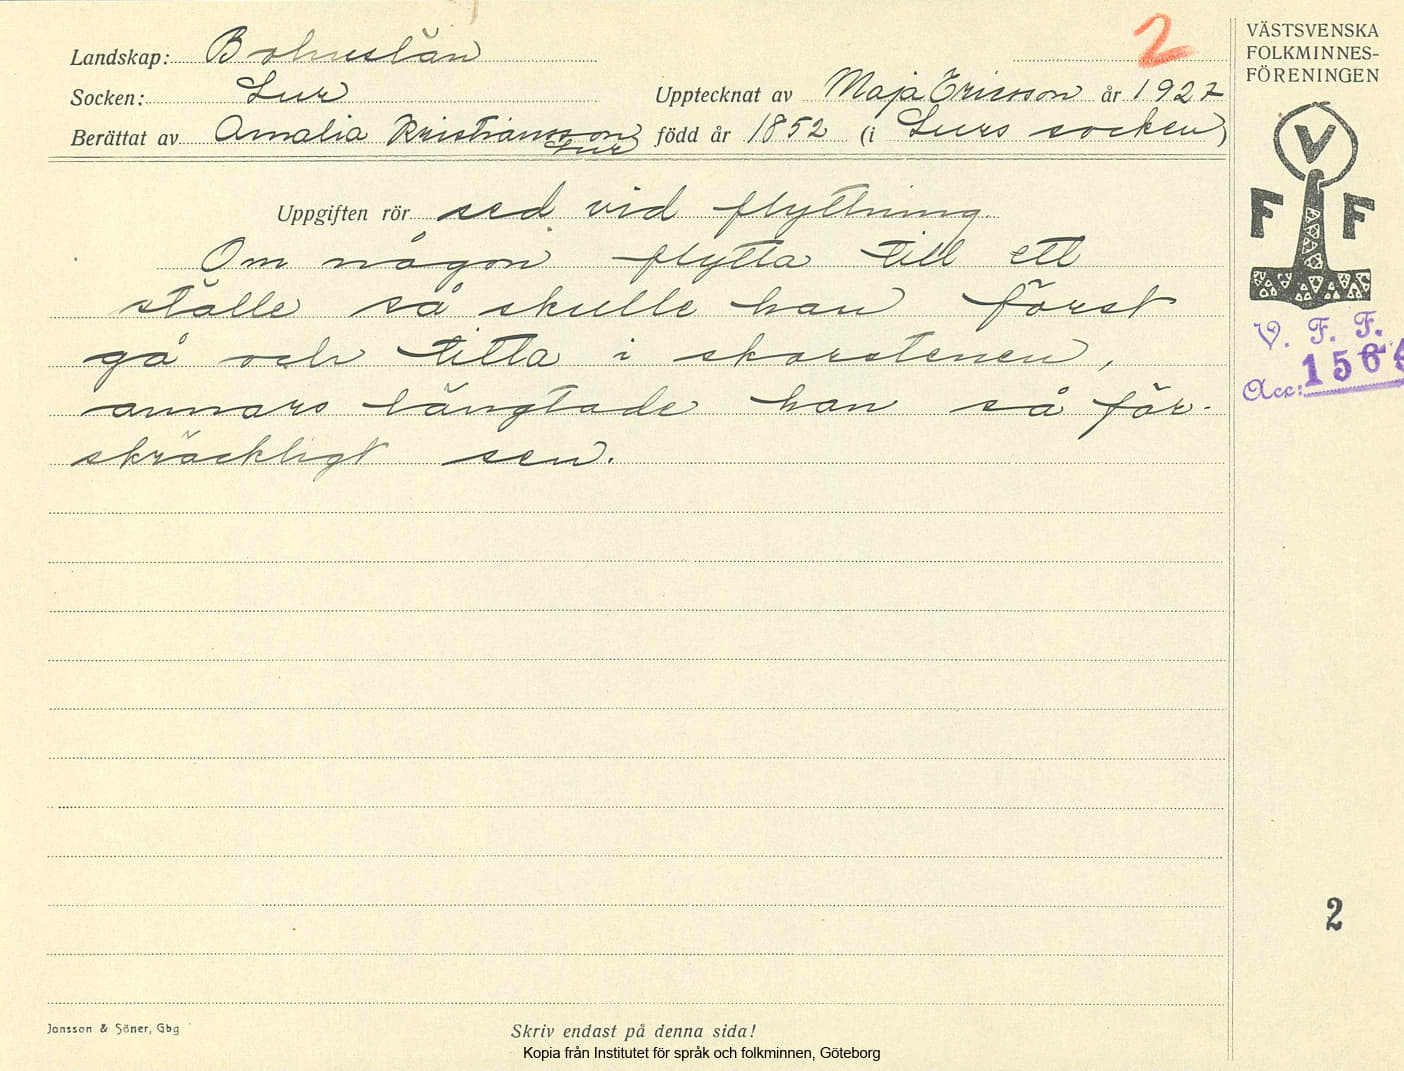 2
Landskap: Bohuslän
Socken: Lur
Upptecknat av Maja Ericsson år 1927
Berättat av Amalia Kristiansson, Lur född år 1852 (i Lurs socken)
VÄSTSVENSKA
FOLKMINNES-
FÖRENINGEN
V
F F
V. F. F.
Acc: 1564
Uppgiften rör sed vid flyttning
Om någon flytta till ett
ställe så skulle han först
gå och titta i skorstenen,
annars längtade han så för-
skräckligt sen.
2
Jonsson & Söner, Gbg
Skriv endast på denna sida!
Kopia från Institutet för språk och folkminnen, Göteborg